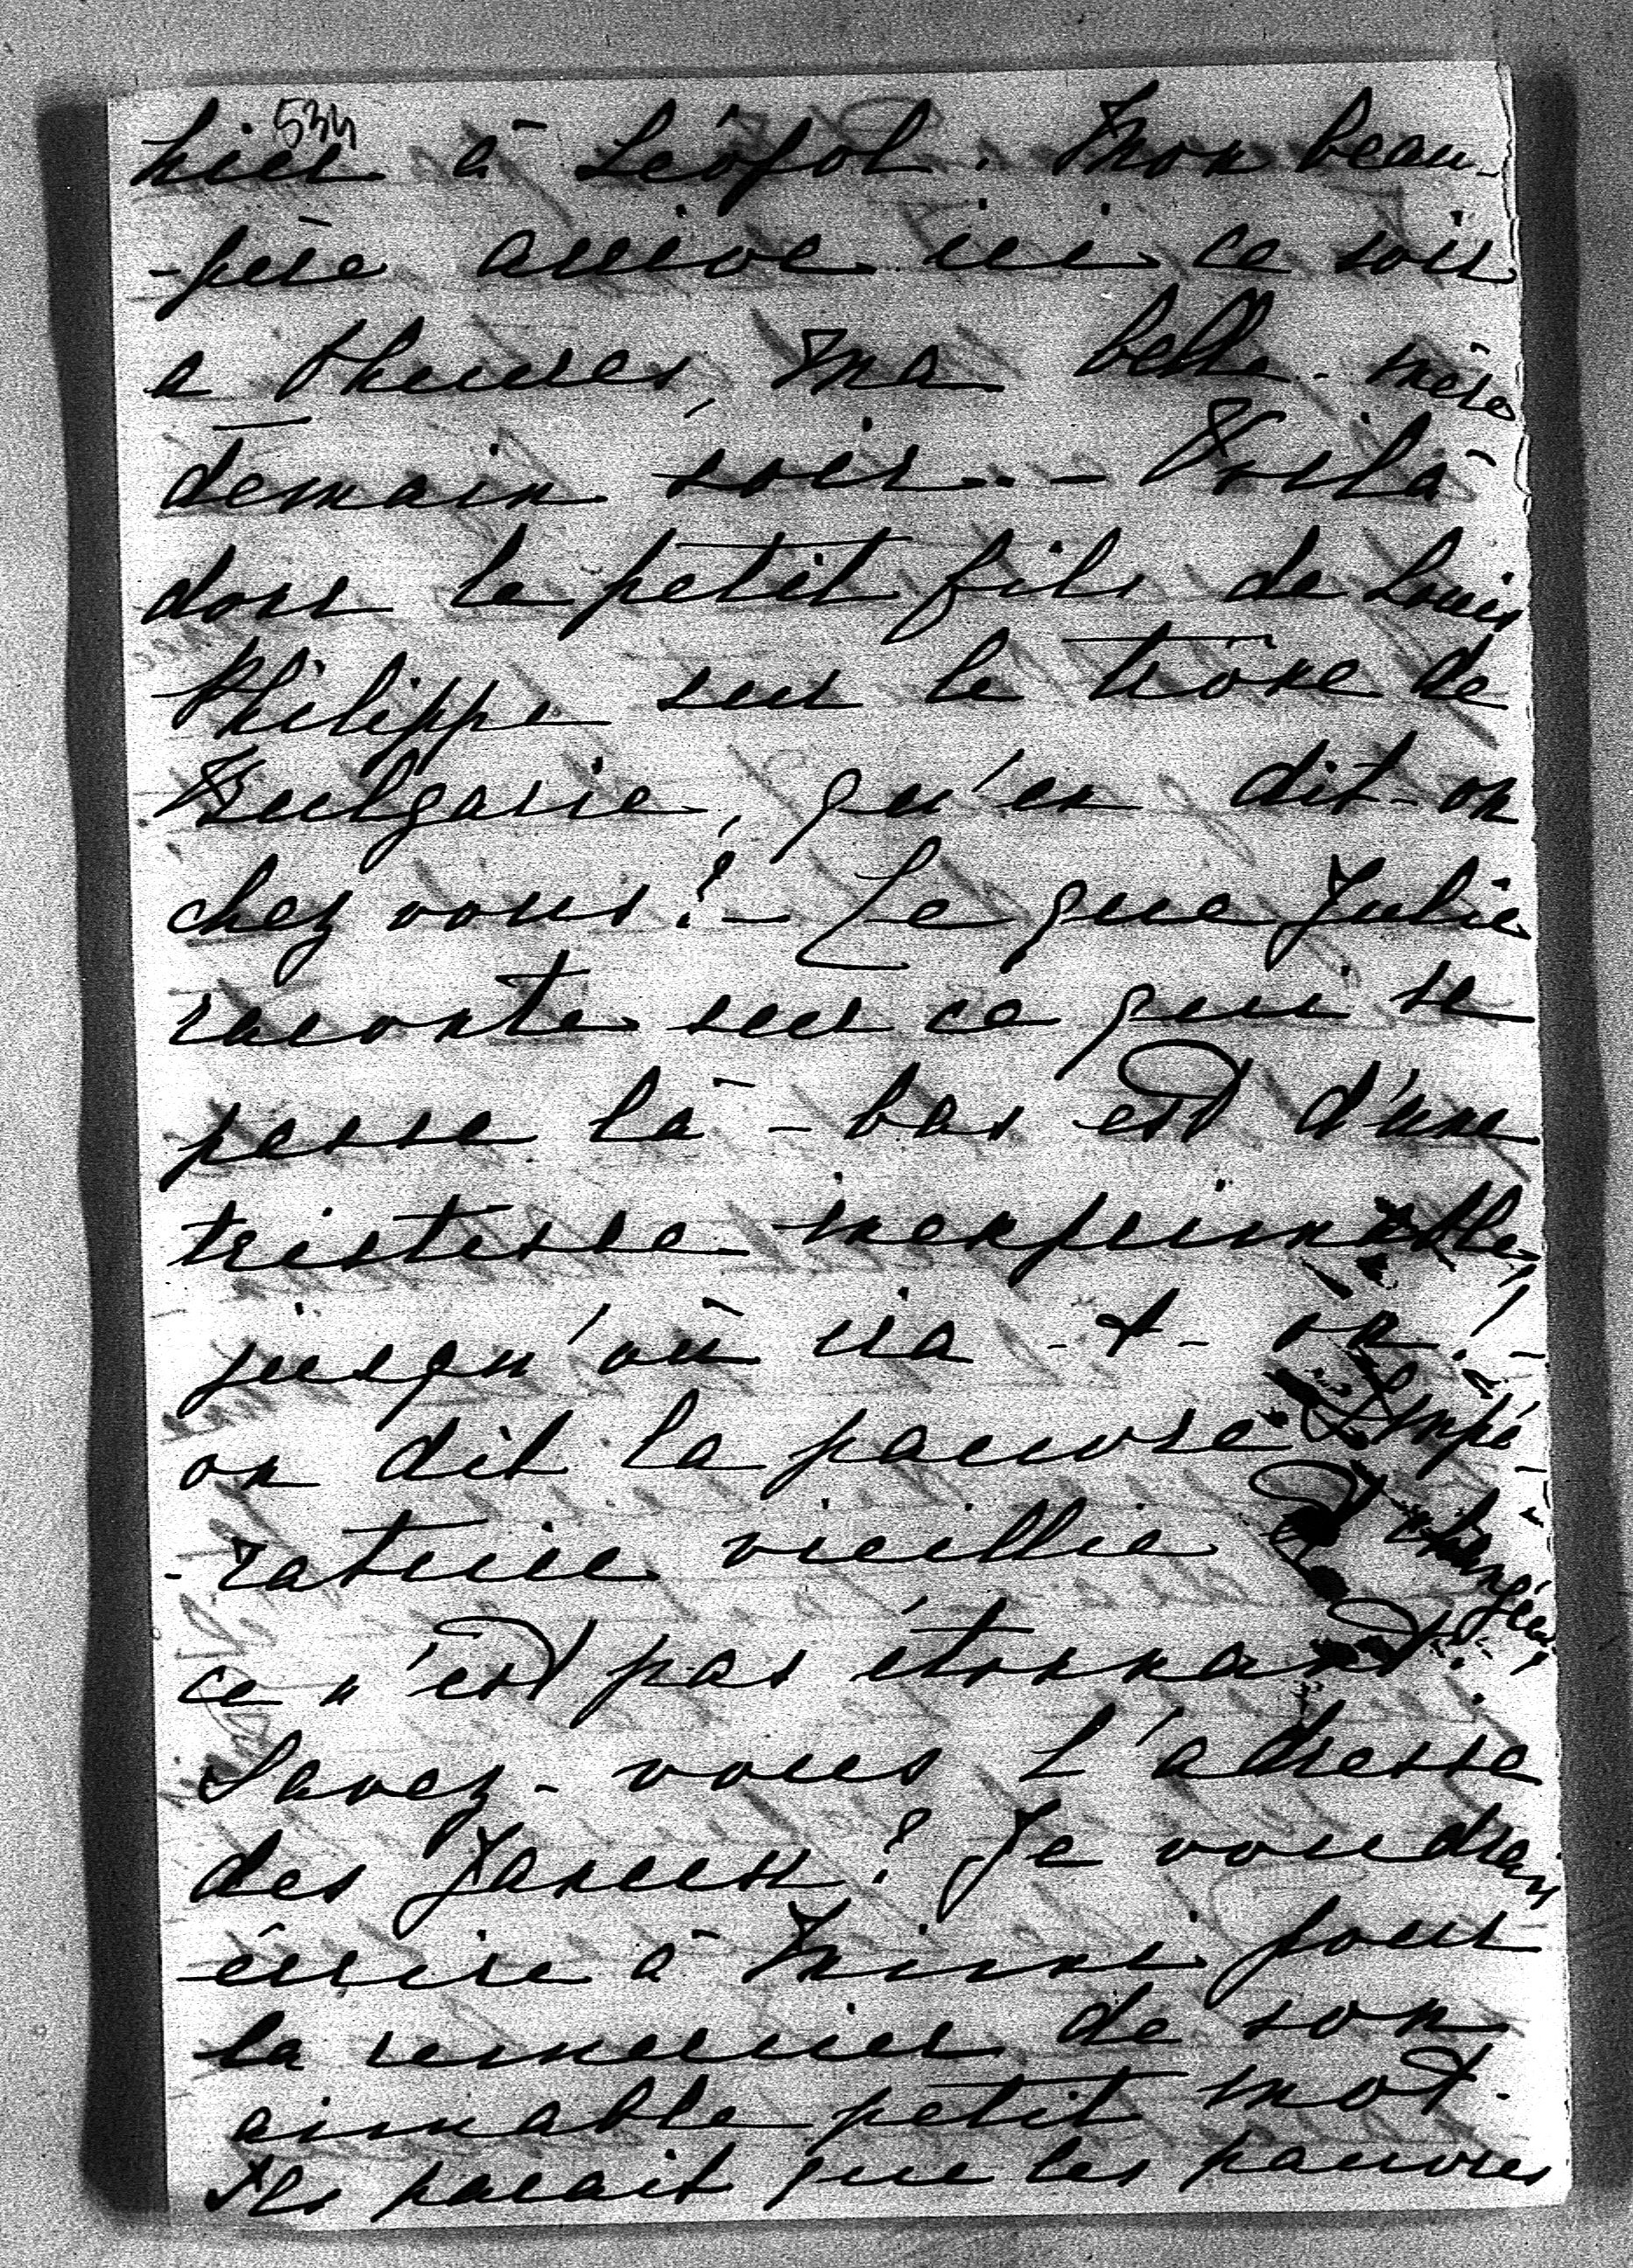 hier à Léopol. Mon beau-
-père arrive ici ce soir
a heures, ma belle-mère
demain soir. - Voilà
donc le petit fils de Louis
Philippe sur le trône de
Bulgarie, qu'en dit-on
chez vous? - Ce que Julie
raconte sur ce qui se
passe là-bas est d'une
tristesse inexprimable,
jusqu'où ira-t-on! -
on dit la pauvre Impé-
-ratrice vieillie et changée,
ce n'est pas étonnant.
Savez-vous l'adresse
des ? Je voudrais
écrire à Mimi pour
la remercier de son
aimable petit mot.
Il parait que les pauvres